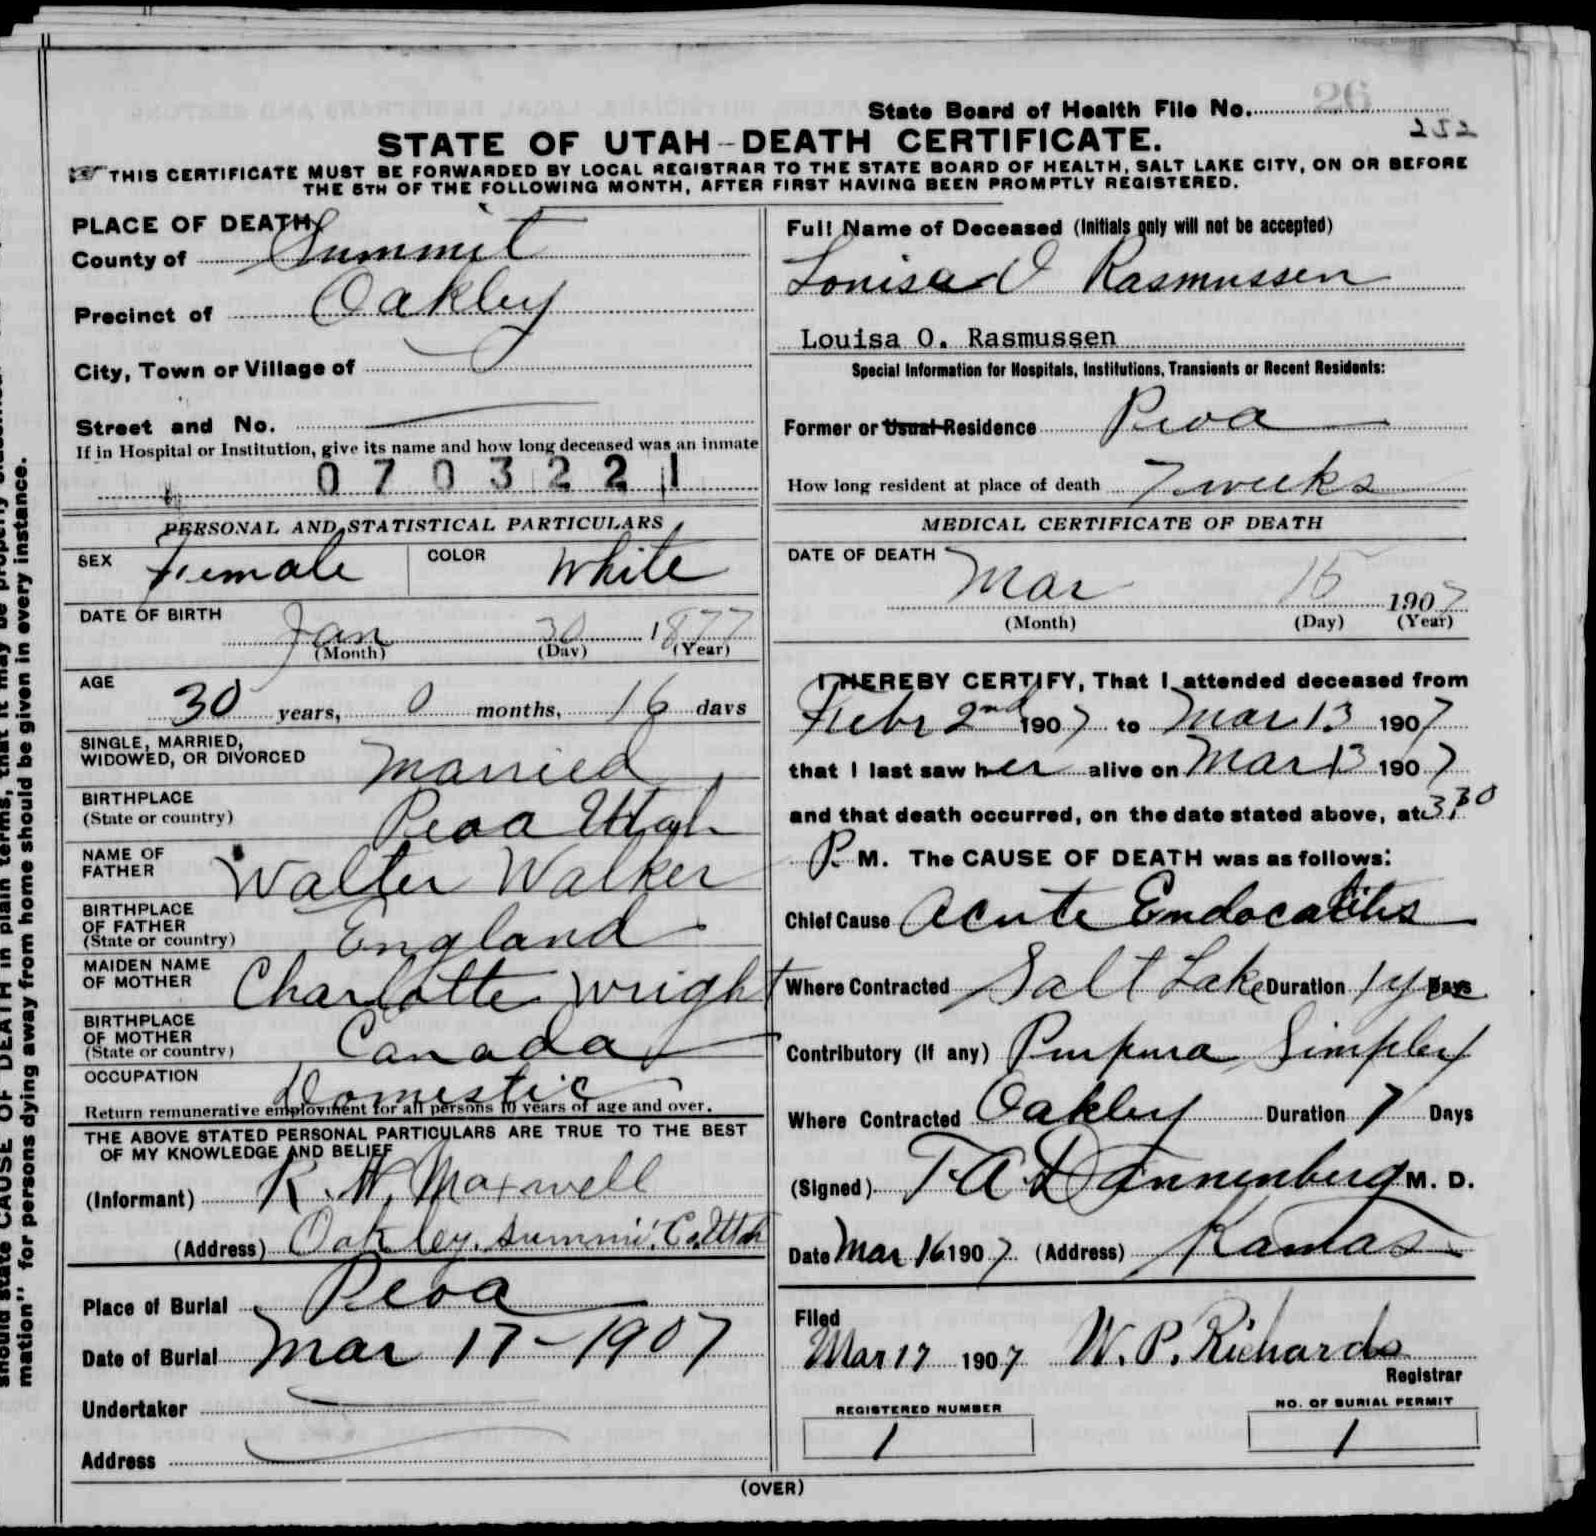 State Board of Health File No. 26
252
STATE OF UTAH-DEATH CERTIFICATE.
THIS CERTIFICATE MUST BE FORWARDED BY LOCAL REGISTRAR TO THE STATE BOARD OF HEALTH, SALT LAKE CITY, ON OR BEFORE
THE 5TH OF THE FOLLOWING MONTH, AFTER FIRST HAVING BEEN PROMPTLY REGISTERED.
PLACE OF DEATH
County of Summit
Precinct of Oakley
City, Town or Village of
Street and No.
If in Hospital or Institution, give its name and how long deceased was an inmate
0 7 0 3 2 2 1
PERSONAL AND STATISTICAL PARTICULARS
SEX Female COLOR White
DATE OF BIRTH
Jan 30 1877
(Month) (Day) (Year)
AGE
30 years, 0 months, 16 days
SINGLE, MARRIED,
WIDOWED, OR DIVORCED Married
BIRTHPLACE
(State or country) Peoa Utah
NAME OF
FATHER Walter Walker
BIRTHPLACE
OF FATHER
(State or country) England
MAIDEN NAME
OF MOTHER Charlotte Wright
BIRTHPLACE
OF MOTHER
(State or country) Canada
OCCUPATION Domestic
Return remunerative employment for all persons 10 years of age and over.
THE ABOVE STATED PERSONAL PARTICULARS ARE TRUE TO THE BEST
OF MY KNOWLEDGE AND BELIEF
(Informant) R. N. Maxwell
(Address) Oakley, Summi. Co. Utah
Place of Burial Peoa
Date of Burial Mar 17-1907
Undertaker
Address
Full Name of Deceased (Initials only will not be accepted)
Louisa O Rasmussen
Louisa O. Rasmussen
Special Information for Hospitals, Institutions, Transients or Recent Residents:
Former or Usual Residence Peoa
How long resident at place of death 7 weeks
MEDICAL CERTIFICATE OF DEATH
DATE OF DEATH
Mar 15 1907
(Month) (Day) (Year)
I HEREBY CERTIFY, That I attended deceased from
Febr 2nd 1907 to Mar 13 1907
that I last saw her alive on Mar 13 1907
and that death occurred, on the date stated above, at 3.30
P. M. The CAUSE OF DEATH was as follows:
Chief Cause Acute Endocaditis
Where Contracted Salt Lake Duration 1 year Days
Contributory (if any) Purpura Simplex
Where Contracted Oakley Duration 7 Days
(Signed) T. A. Dannenberg M. D.
Date Mar 16 1907 (Address) Kamas
Filed
Mar 17 1907 W. P. Richards
Registrar
REGISTERED NUMBER
1
NO. OF BURIAL PERMIT
1
(OVER)
should state CAUSE OF DEATH in plain terms, that it may be properly
mation" for persons dying away from home should be given in every instance.